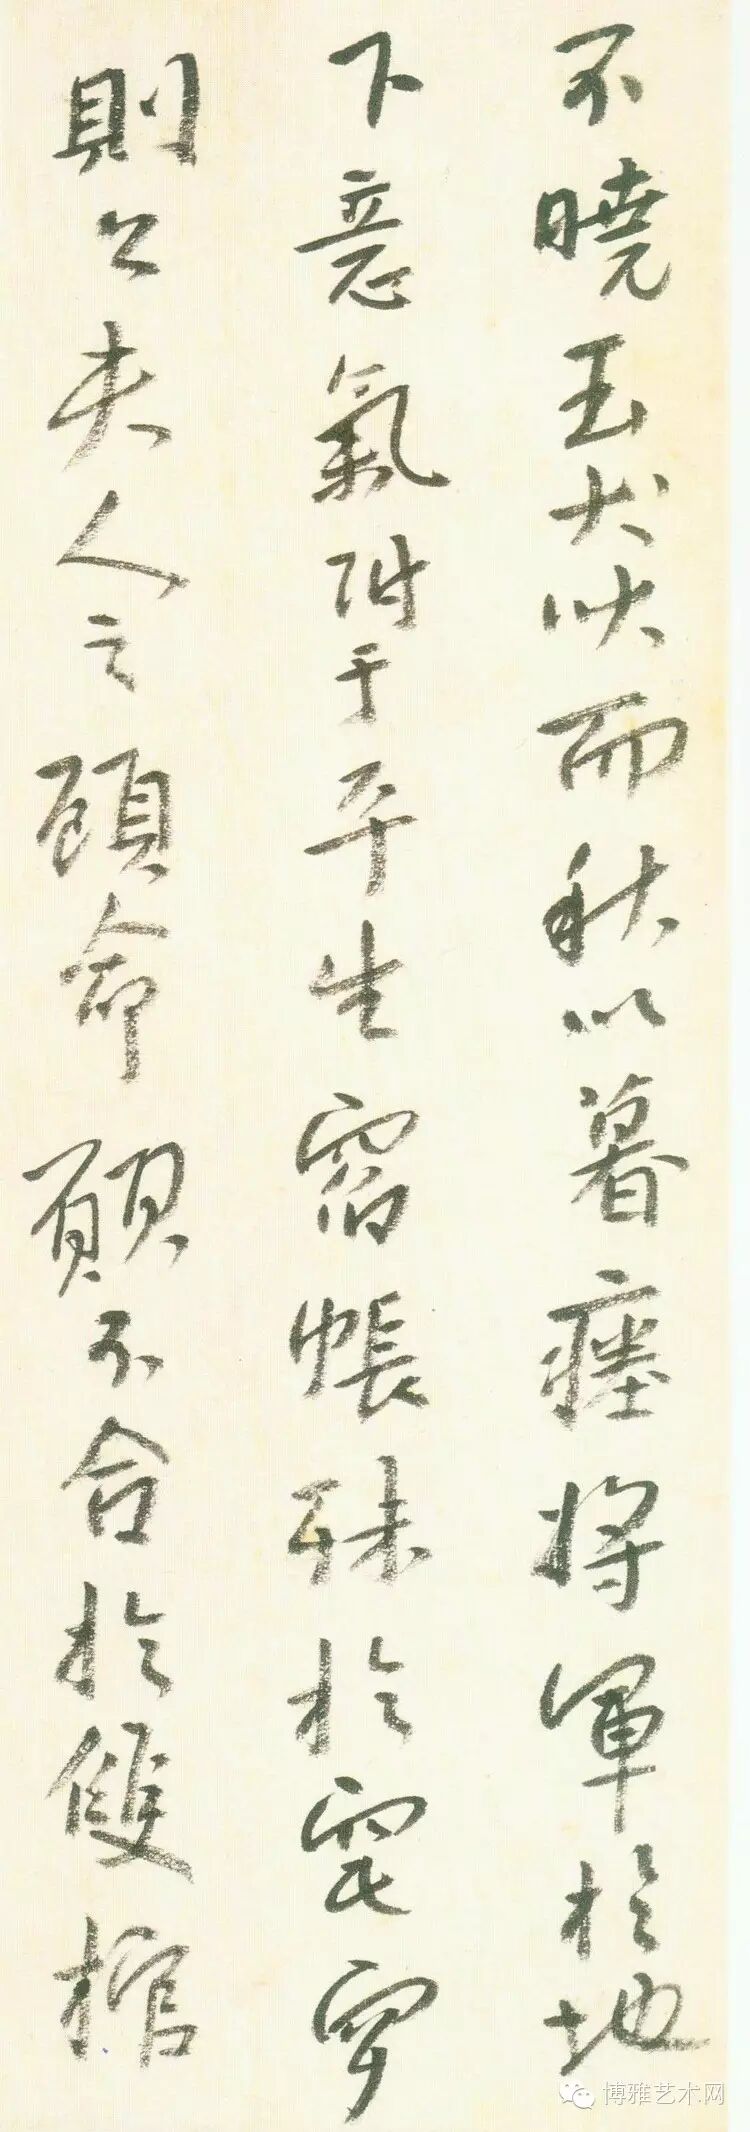 不曉玉犬吠而秋以暮瘞將軍於地
下意氣附于平生宿帳殊於窀穸
則公夫人之顧命願不合於雙棺
博雅艺术网